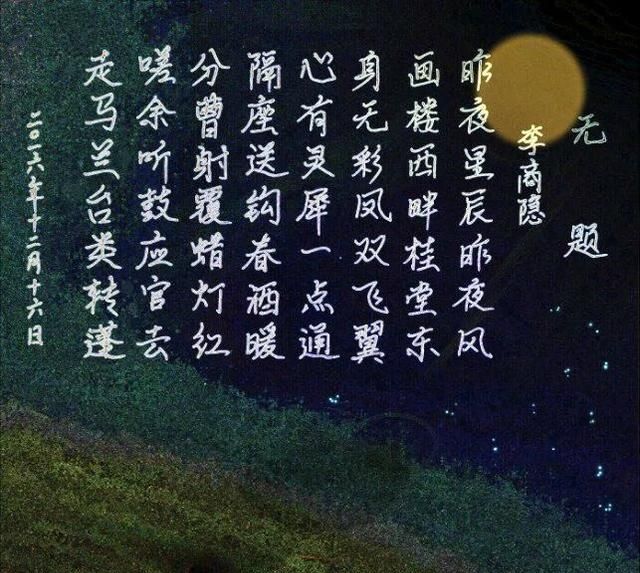 无题
李商隐
昨夜星辰昨夜风
画楼西畔桂堂东
身无彩凤双飞翼
心有灵犀一点通
隔座送钩春酒暖
分曹射覆蜡灯红
嗟余听鼓应官去
走马兰台类转蓬
二〇一六年十二月十六日